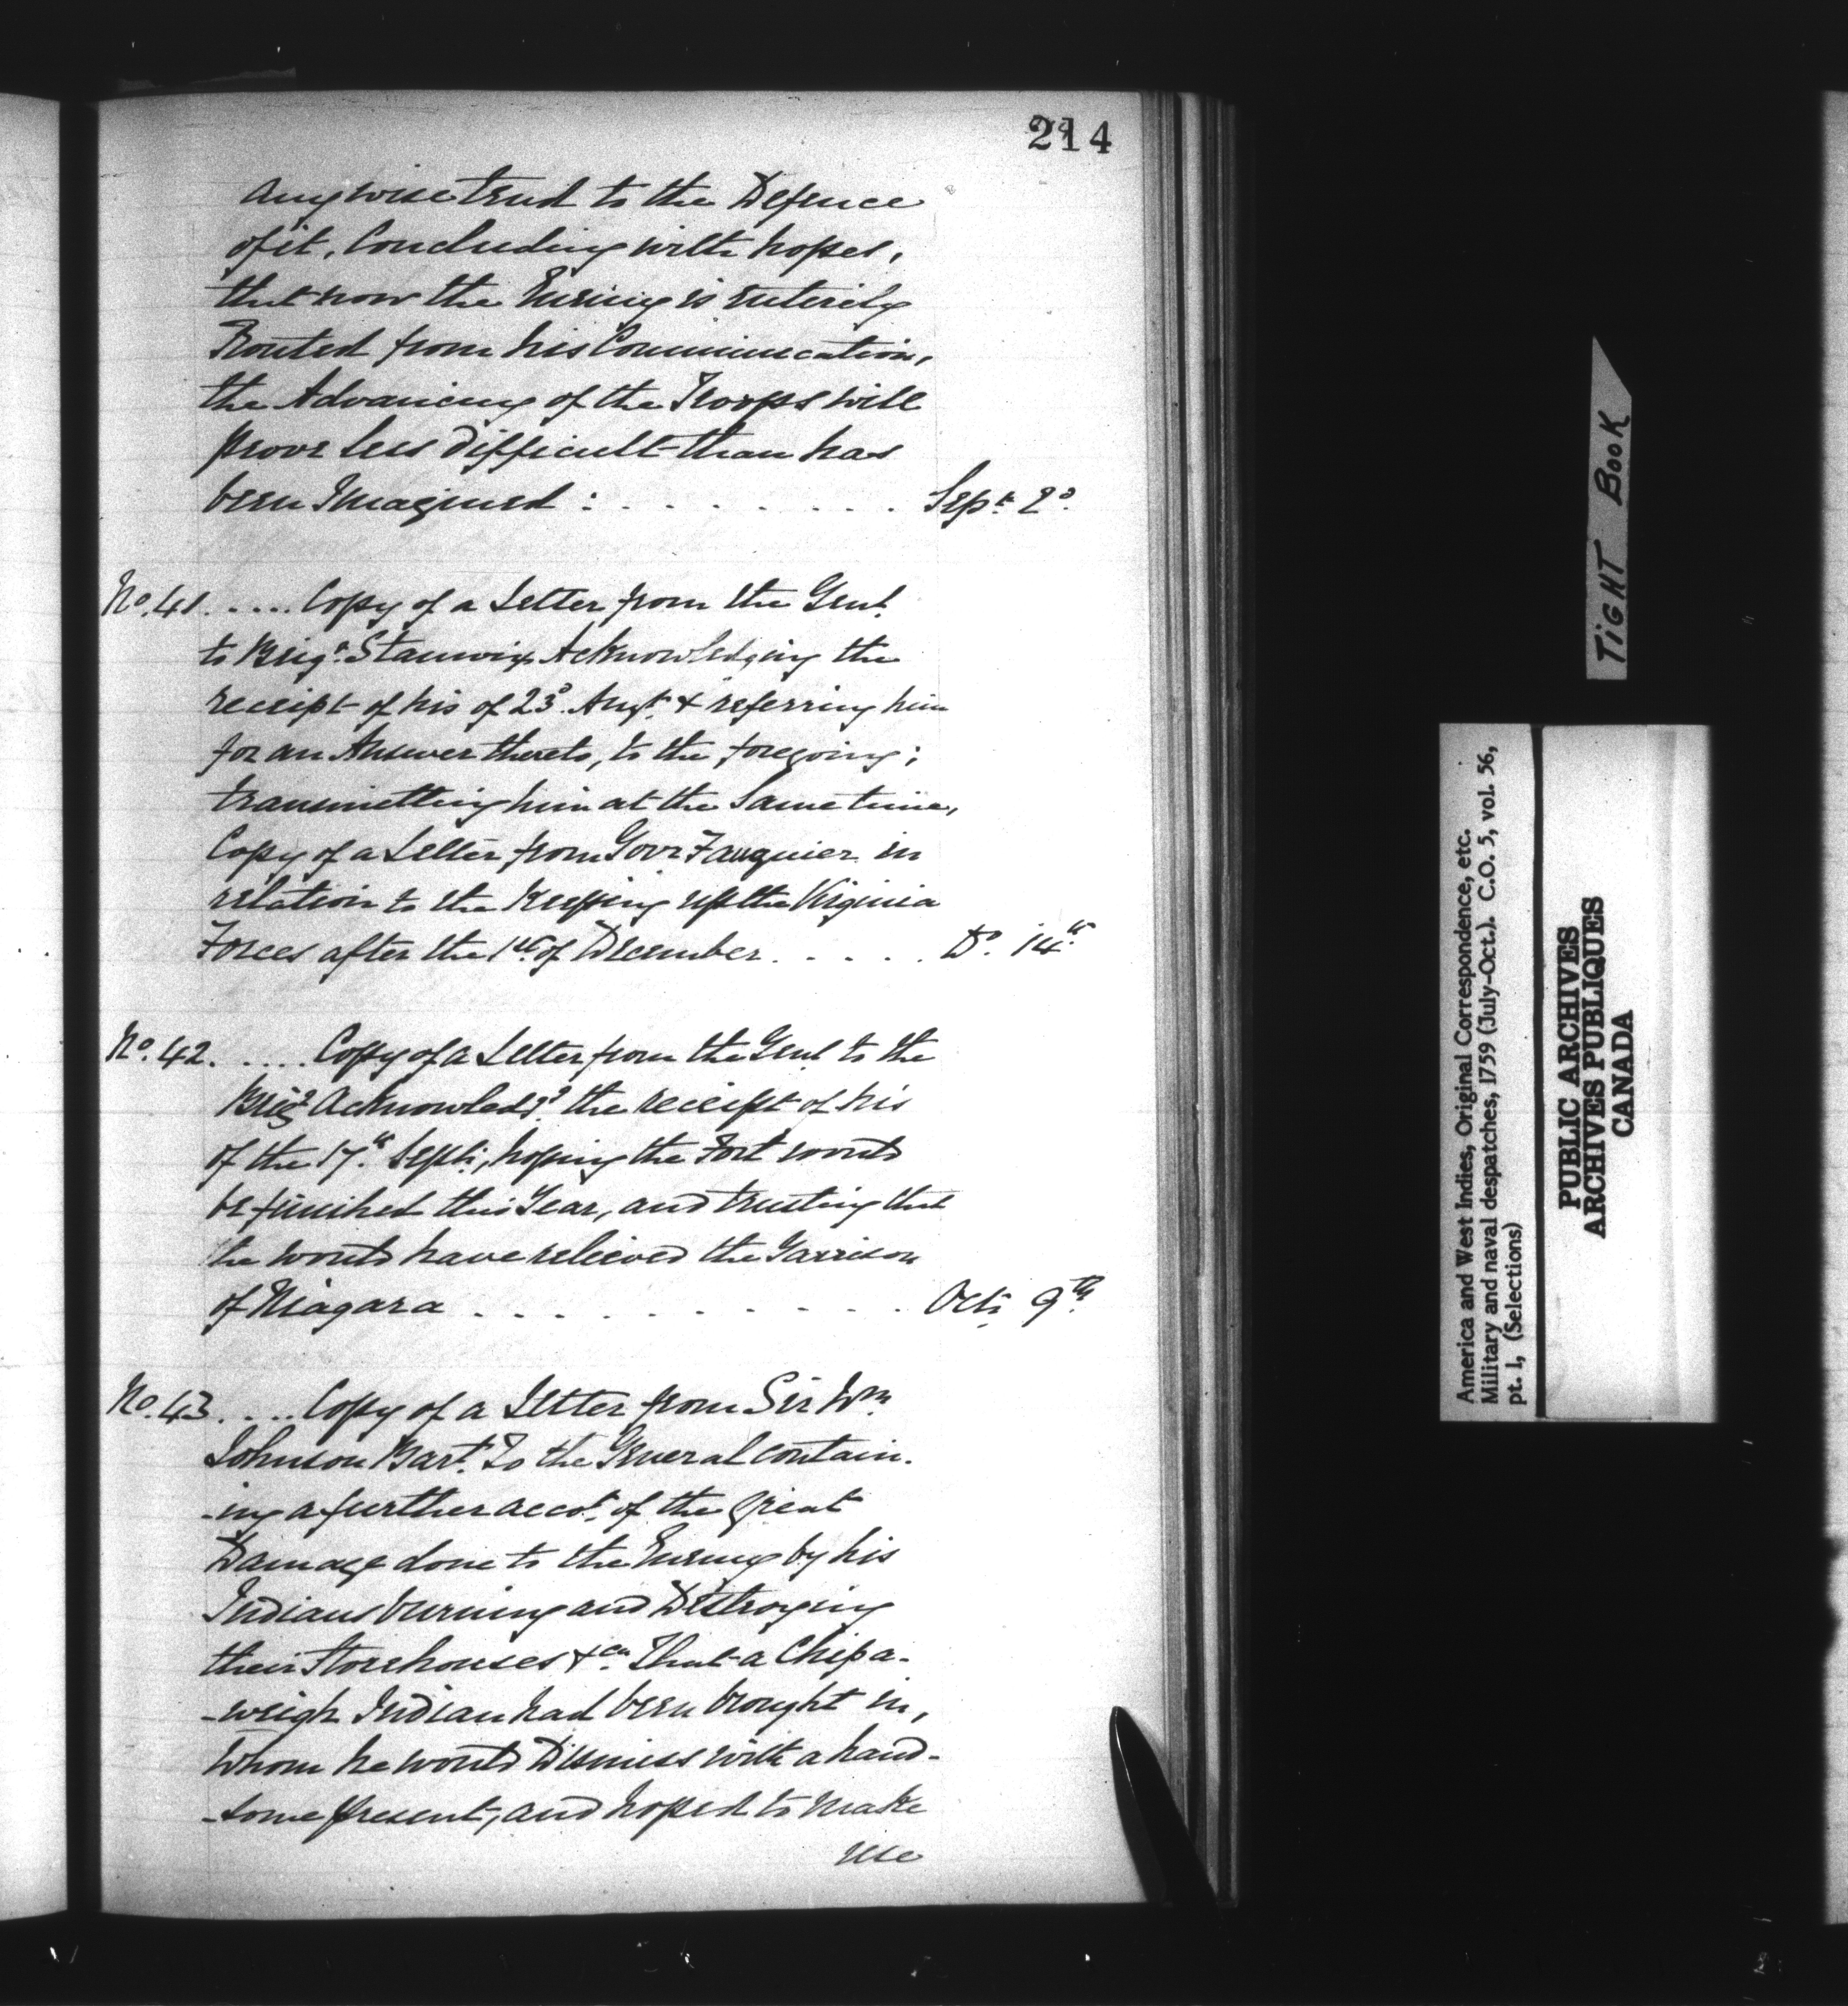 214
Anywise tend to the Defence
of it. Concluding with hopes,
that now the Enemy is entirely
Routed from his Communication,
the Advancing of the Troops will
prove less difficult than has
been Imagined : . . . . . . . . Sept. 2d.
No. 41. .... Copy of a Letter from the Genl.
to Brigr. Stanwix Acknowledging the
receipt of his of 23d. Augt. & referring him
for an Answer thereto, to the foregoing;
transmitting him at the Same time,
Copy of a Letter from Govr Fauquier in
relation to the Keeping up the Virginia
Forces after the 1st of December. . . . . . Do. 14th.
No. 42. .... Copy of a Letter from the Genl to the
Brigr Acknowledgg. the receipt of his
of the 17th. Sept:, hoping the Fort would
be finished this Year, and trusting that
he would have relieved the Garrison
of Niagara . . . . . . . . . . . Octr. 9th.
No. 43. .... Copy of a Letter from Sir Wm.
Johnson Bart. To the General contain.
-ing a further accot. of the great
Damage done to the Enemy by his
Indians burning and Destroying
their Storehouses &ca. That a Chipa-
-weigh Indian had been brought in,
Whom he would Dismiss with a hand-
-some present, and hoped to make
use
TIGHT BOOK
America and West Indies, Original Correspondence, etc.
Military and naval despatches, 1759 (July-Oct.). C.O. 5, vol. 56,
pt. 1, (Selections)
PUBLIC ARCHIVES
ARCHIVES PUBLIQUES
CANADA